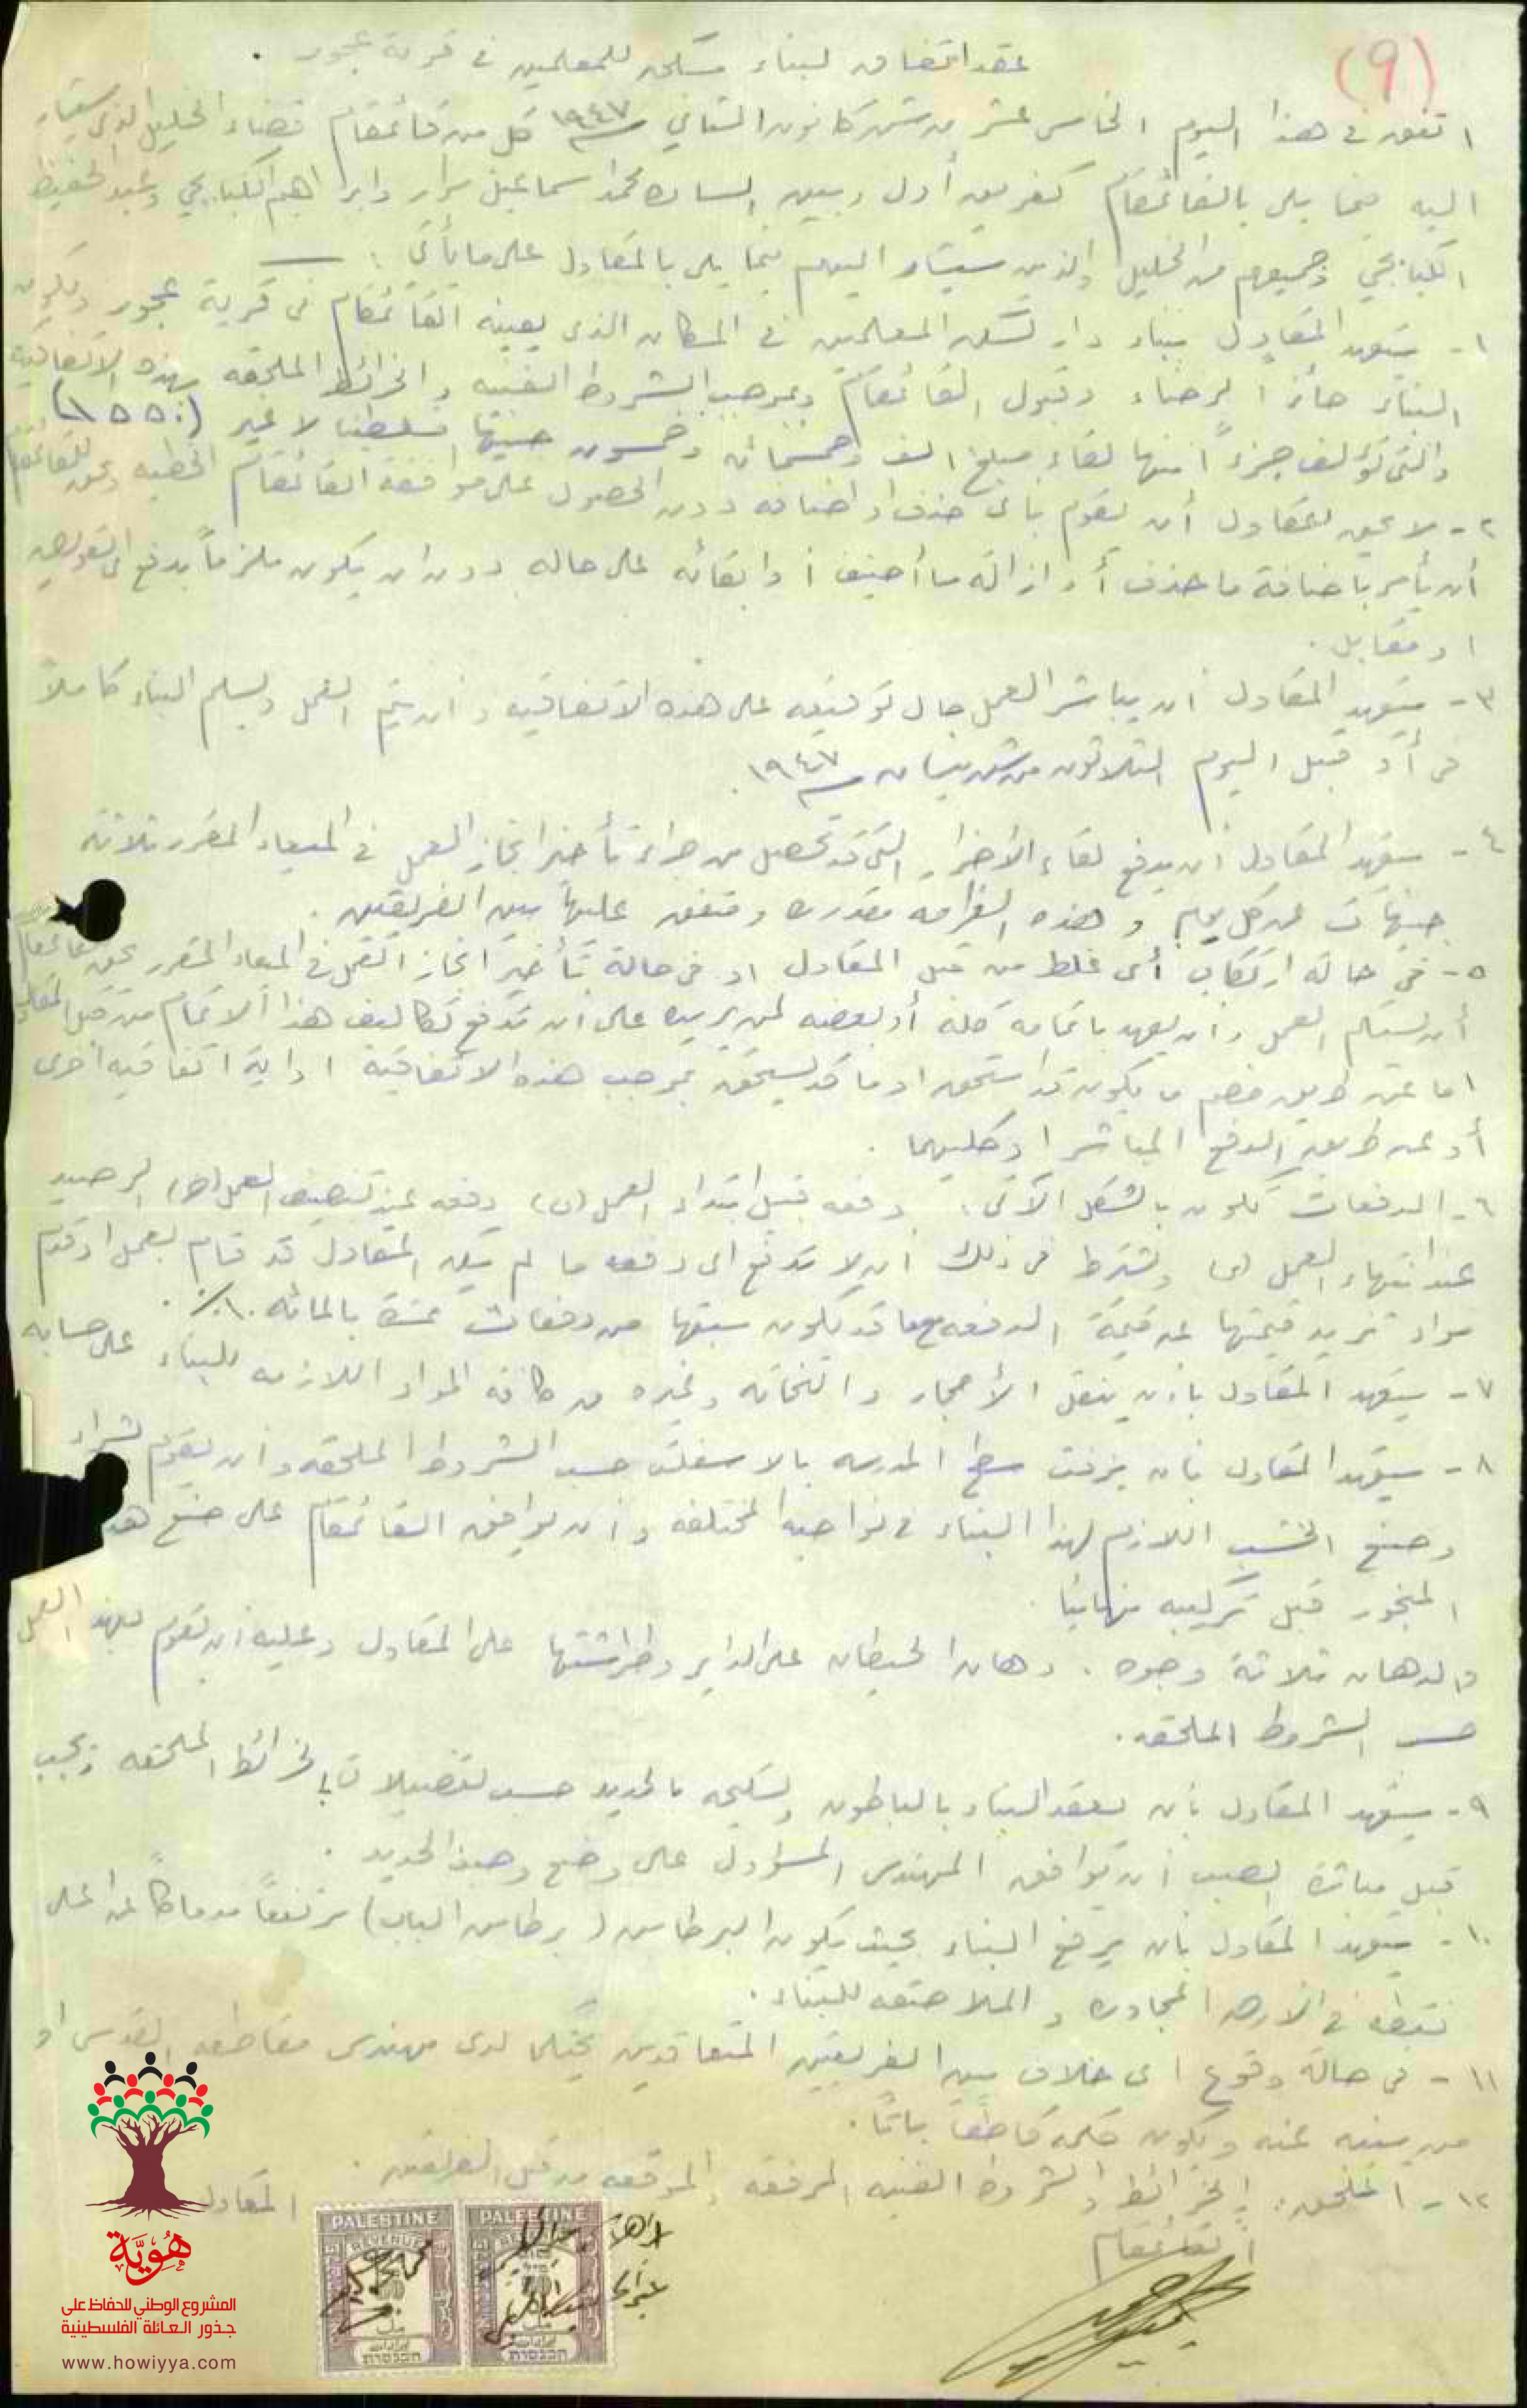 (٩)
عقد اتفاق لبناء مسكن للمعلمين في قرية عجور .
اتفق في هذا اليوم الخامس عشر من شهر كانون الثاني سنة ١٩٤٧ كل من قائمقام قضاء الخليل الذي سيشار
اليه فيما يلي بالقائمقام كفريق أول وبين السادة محمد اسماعيل سرار وابراهيم الكبابجي وعبد الحفيظ
الكبابجي وجميعهم من الخليل والذين سيشار اليهم فيما يلي بالمقاول على ما يأتي :
١ - يتعهد المقاول ببناء دار لسكن المعلمين في المكان الذي يعينه القائمقام في قرية عجور ويكون
البناء حائزاً لرضاء وقبول القائمقام وبموجب الشروط الفنيه والخرائط الملحقه بهذه الاتفاقية
والتي تؤلف جزءً منها لقاء مبلغ الف وخمسمائة وخمسون جنيها فلسطينيا لا غير (١٥٥٠)
٢ - لا يحق للمقاول أن يقوم باى حذف او اضافه دون الحصول على موافقة القائمقام الخطيه ويحق للقائمقام
أن يأمر باضافة ما حذف أو ازالة ما أضيف أو ابقائه على حاله دون ان يكون ملزماً بدفع اى تعويض
او مقابل .
٣ - يتعهد المقاول أن يباشر العمل حال توقيعه على هذه الاتفاقيه وأن يتم العمل ويسلم البناء كاملاً
في أو قبل اليوم الثلاثون من شهر نيسان سنة ١٩٤٧.
٤ - يتعهد المقاول أن يدفع لقاء الأضرار التى قد تحصل من جراء تأخير انجاز العمل في الميعاد المقرر ثلاثة
جنيهات عن كل يوم وهذه الغرامة مقدره ومتفق عليها بين الفريقين .
٥ - في حالة ارتكاب أى غلط من قبل المقاول او في حالة تأخير انجاز العمل في الميعاد المقرر يحق للقائمقام
أن يستلم العمل وأن يعهد باتمامه كله أو بعضه لمن يريده على ان تدفع تكاليف هذا الاتمام من قبل المقاول
اما عن طريق خصم ما يكون قد استحق او ما قد يستحق بموجب هذه الاتفاقية او اية اتفاقيه أخرى
أو عن طريق الدفع المباشر او كليهما .
٦ - الدفعات تكون بالشكل الآتى : دفعه قبل ابتداء العمل دفعه عند تنصيف العمل الرصيد
عند انتهاء العمل ويشترط في ذلك أن لا تدفع اى دفعه ما لم يكن المقاول قد قام بعمل او قدم
مواد تزيد قيمتها عن قيمة الدفعه مع ما قد يكون سبقها من دفعات عشرة بالمائه ١٠٪ .
٧ - يتعهد المقاول بأن ينقل الأحجار والنحاته وغيره من كافة المواد اللازمه للبناء على حسابه
٨ - يتعهد المقاول بأن يزفت سطح المدرسه بالاسفلت حسب الشروط الملحقه وأن يقوم بشراء
وصنع الخشب اللازم لهذا البناء في نواحيه المختلفه وأن يوافق القائمقام على صنع هذا
المنجور قبل تركيبه نهائيا .
والدهان ثلاثة وجوه . دهان الحيطان على الداير وطراشتها على المقاول وعليه أن يقوم بهذا العمل
حسب الشروط الملحقه .
٩ - يتعهد المقاول بأن يعقد البناء بالباطون وتسليحه بالحديد حسب تفصيلات الخرائط الملحقه ويجب
قبل مباشرة الصب أن يوافق المهندس المسؤول على وضع وصف الحديد .
١٠ - يتعهد المقاول بأن يرفع البناء بحيث يكون البرطاس (برطاس الباب) مرتفعاً مدماكاً عن اعلى
نقطه في الارض المجاوره والملاصقه للبناء .
١١ - في حالة وقوع اى خلاف بين الفريقين المتعاقدين يحتكم لدى مهندس مقاطعه القدس او
من ينيبه عنه ويكون حكمه قاطعاً باتاً .
١٢ - الملحق : الخرائط والشروط الفنيه المرفقه الموقعه من قبل الفريقين .
القائمقام
المقاول
PALESTINE
PALESTINE
REVENUE
هُوِيَّة
المشروع الوطني للحفاظ على
جذور العائلة الفلسطينية
www.howiyya.com